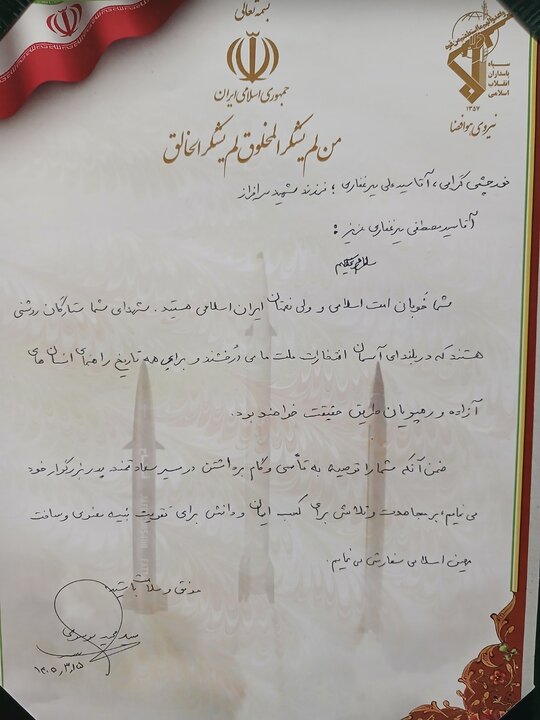 بسمه تعالی
جمهوری اسلامی ایران
سپاه
پاسداران
انقلاب
اسلامی
۱۳۵۷
نیروی هوافضا
من لم یشکر المخلوق لم یشکر الخالق
نورچشمی گرامی، آقا سید علی میرغفاری؛ فرزند شهید سرافراز
آقا سید مصطفی میرغفاری عزیز:
سلام علیکم
شما خوبان امت اسلامی و ولی نعمتان ایران اسلامی هستید. شهدای شما ستارگان روشنی
هستند که در بلندای آسمان افتخارات ملت ما می درخشند و برای همه تاریخ راهنمای انسان های
آزاده و رهپویان طریق حقیقت خواهند بود.
ضمن آنکه شما را توصیه به تأسی و گام برداشتن در مسیر سعادتمند پدر بزرگوار خود
می نمایم، بر مجاهدت و تلاش برای کسب ایمان و دانش برای تقویت بنیه معنوی و ساخت
میهن اسلامی سفارش می نمایم.
موفق و سلامت باشید
سید مجید موسوی
۱۴۰۵٫۳٫۱۵